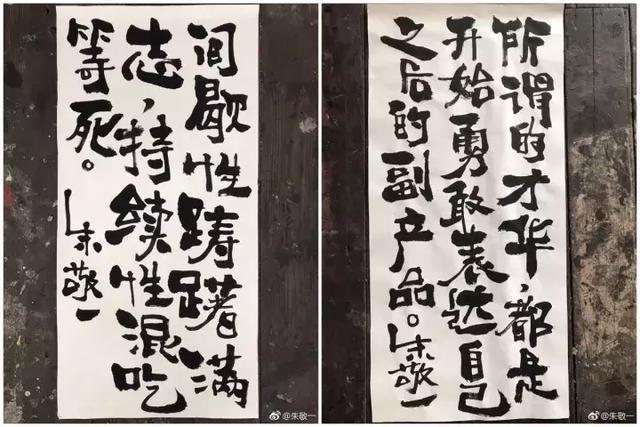 间歇性踌躇满
志，持续性混吃
等死。
朱敬一
@朱敬一
所谓的才华，都是
开始勇敢表达自己
之后的副产品。朱敬一
@朱敬一